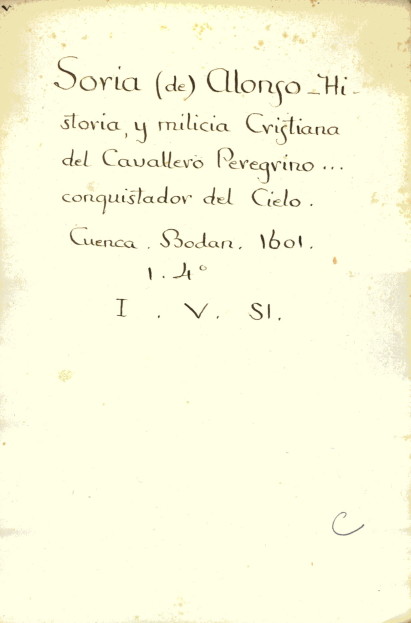 Soria (de) Alonso - Hi-
storia, y milicia Cristiana
del Cavallero Peregrino ...
conquistador del Cielo.
Cuenca. Bodan. 1601.
1. 4°
I . V. SI.
C